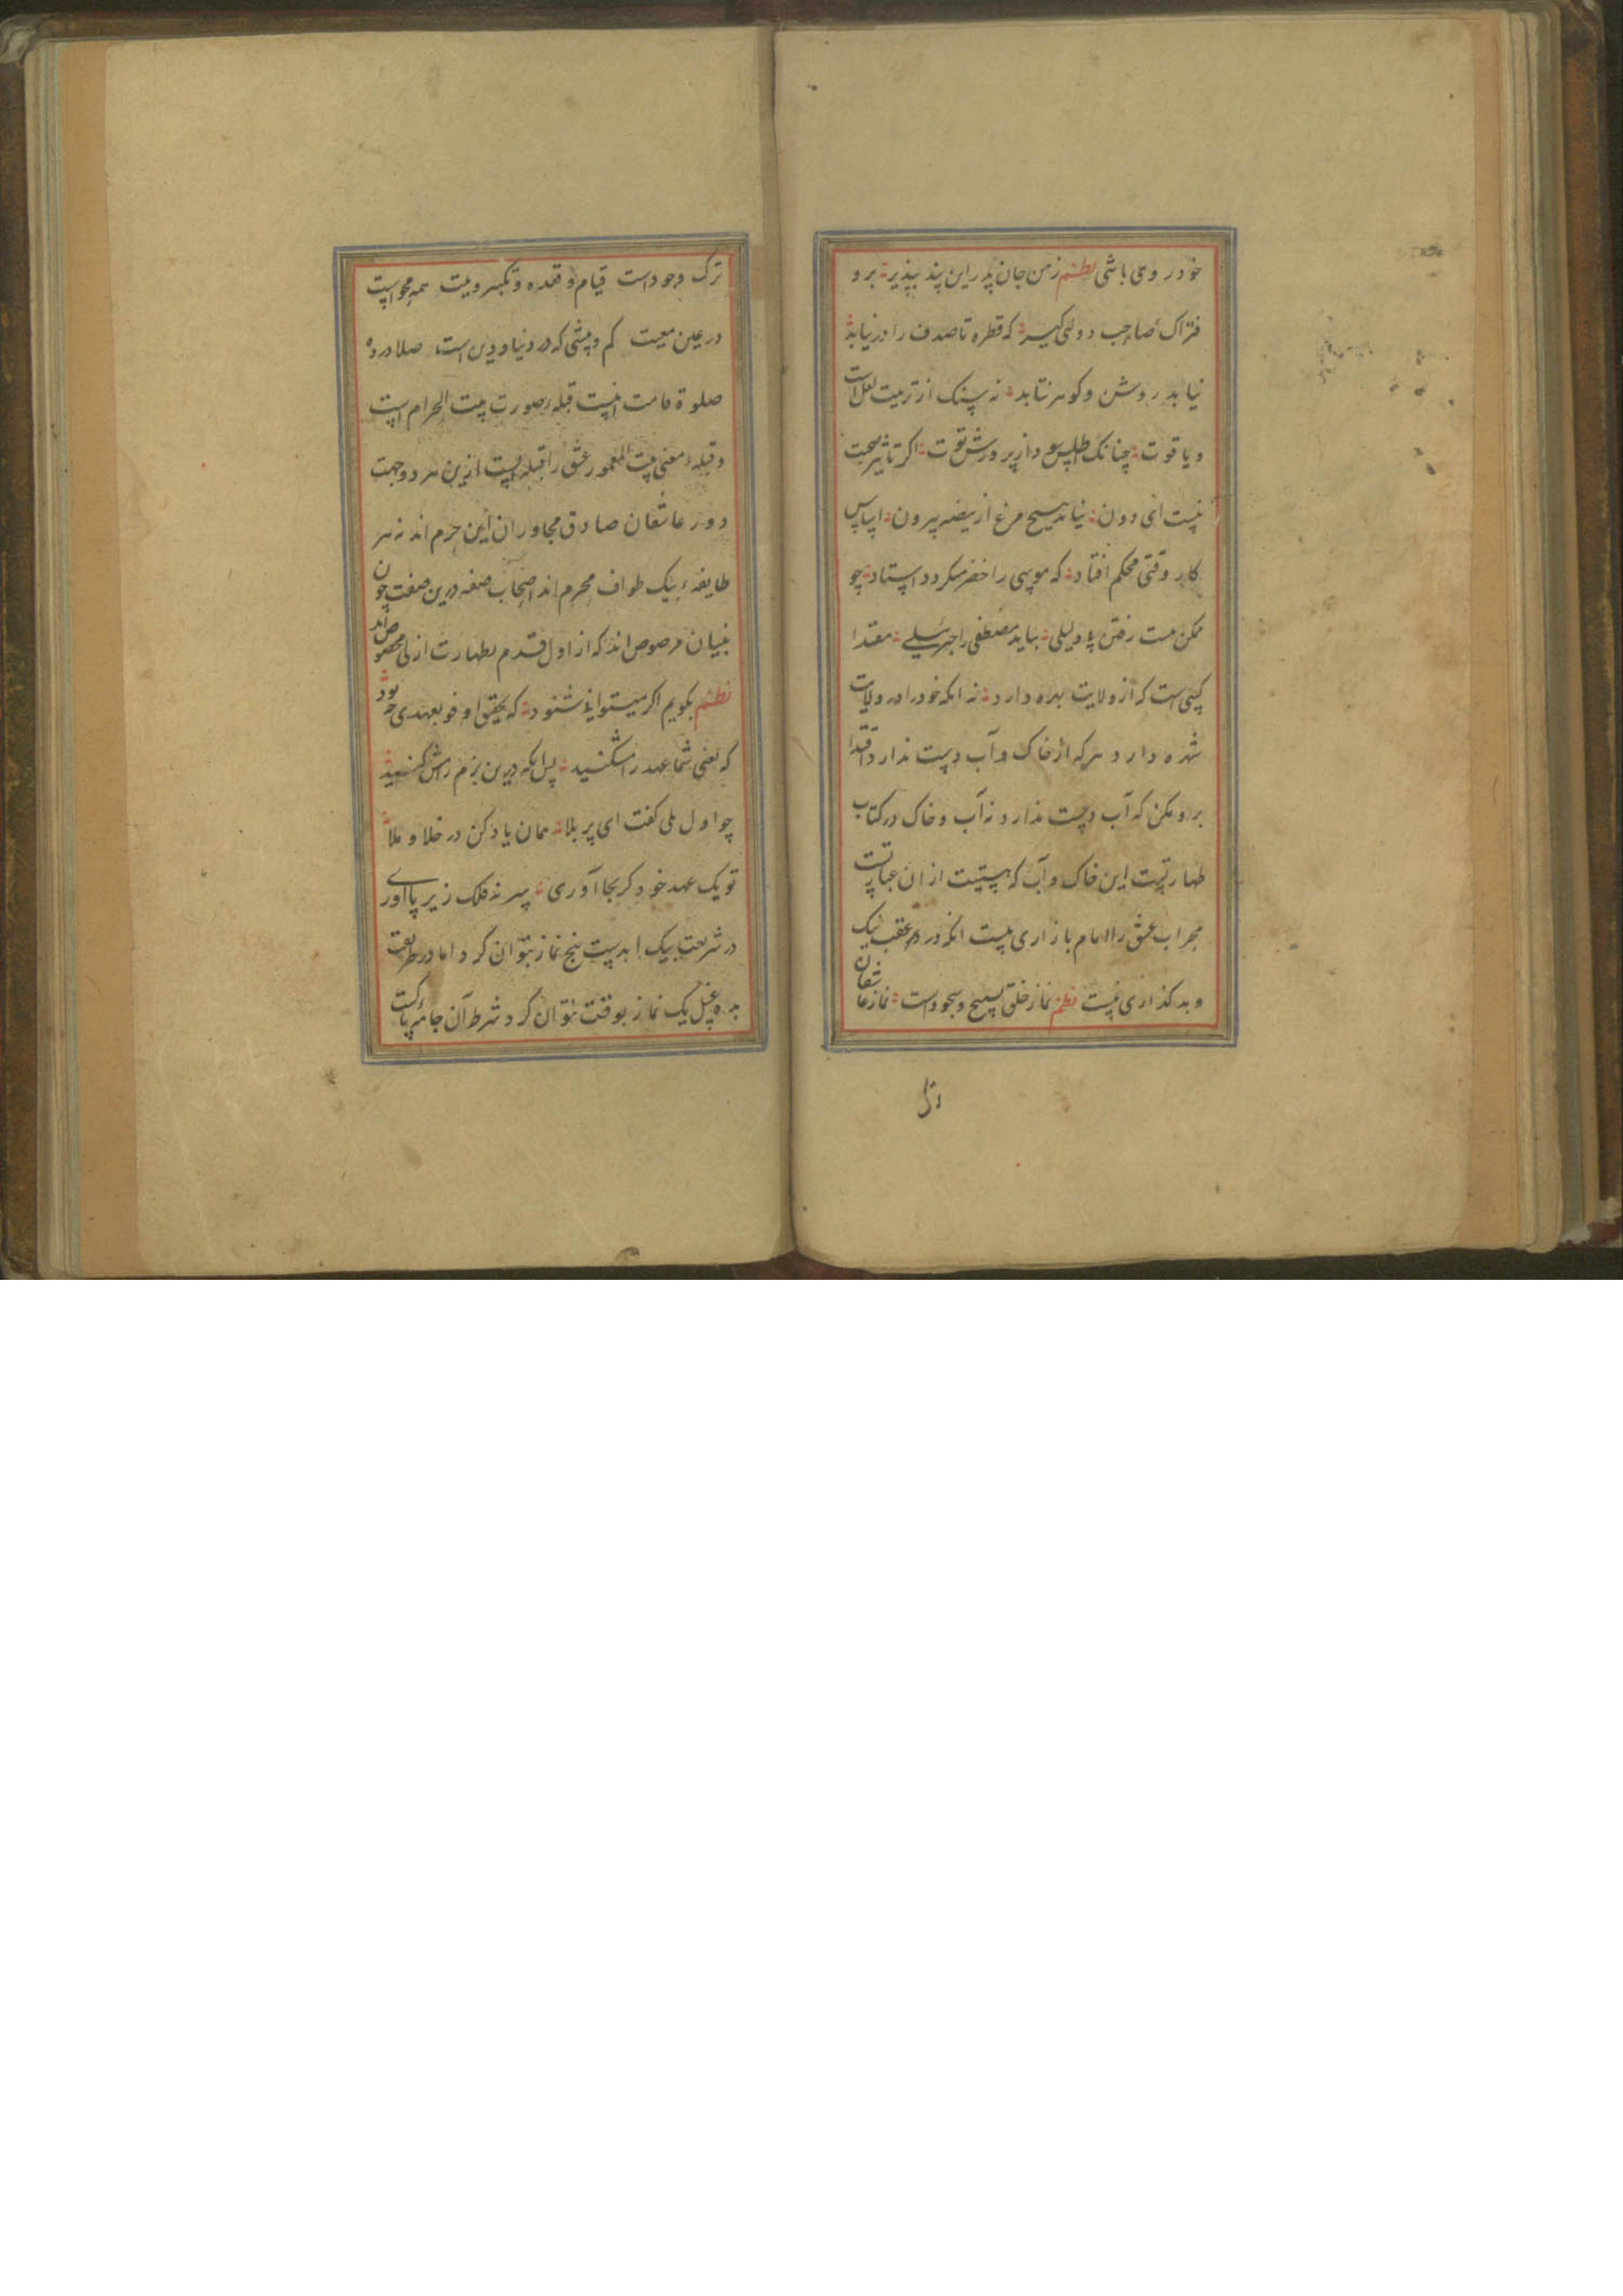 خود روی باشی نظم زمن جان پدر این پند بپذیر برو
فتراک صاحب دولتی گیر که قطره تا صدف را در نیابد
نیابد روشن و گوهر نتابد نه سنک از تربیت لعل است
و یاقوت چنانک اطلس دار پرورش توت اگر تاثیر صحبت
نیست ای دون نیاید هیچ مرغ از بیضه بیرون اساس
کار وقتی محکم افتاد که موسی را خضر میکردد استاد چو
ممکن نیست رفتن بی دلیلی بباید مصطفی را جبرئیلے مقتدا
کسی است که از ولایت بهره دارد نه انکه خود را در ولایت
شهره دارد هر که از خاک و آب دست ندارد اقتدا
برو مکن که آب دست ندارد نه آب و خاک در کتاب
طهارتست این خاک و آب که هستیت از ان عبارتست
محراب عشق را امام بازاری نیست انکه در عقب نیک
و بد گذاری نیست نظم نماز خلق تسبیح و سجود است نماز عاشقان
ترک
ترک وجود است قیام و قعده و تکبیر و نیت همه محو است
در عین معیت کم و بیشی که در دنیا و دین است صلا در ده
صلوة قامت اینست قبلهٔ صورت بیت الحرام است
و قبلهٔ معنی بیت المعمور عشق را قبله ایست ازین هر دو جهت
دور عاشقان صادق مجاوران این حرم اند نه هر
طایفهٔ بیک طواف محرم اند اصحاب صفه درین صفت چون
بنیان مرصوص اند که از اول قدم بطهارت ازلی مخصوص اند
نظم بگویم اگر میتوانے شنود که تحقیق اوفوا بعهدی چه بود
که یعنی شما عهد را مشکنید پس انکه درین بزم
چو اول بلی کفت ای پر بلا همان یاد کن در خلا و ملا
تو یک عهد خود کر بجا آوری سر نه فلک زیر پا آوری
در شریعت بیک ابدست پنج نماز بتوان کرد اما در طریقت
به ده غسل یک نماز بوقت نتوان کرد شرط آن جامه پاکست